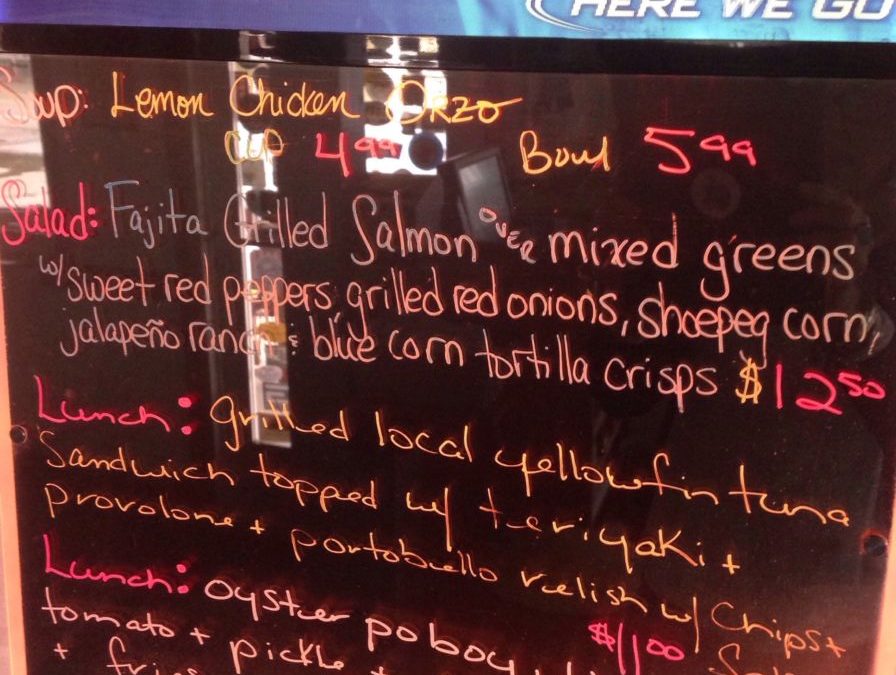 HERE WE GO
Soup: Lemon Chicken Orzo
Cup 4.99 Bowl 5.99
Salad: Fajita Grilled Salmon over mixed greens
w/ sweet red peppers, grilled red onions, shoepeg corn,
jalapeño ranch & blue corn tortilla crisps $12.50
Lunch: grilled local yellowfin tuna
Sandwich topped w/ teriyaki +
provolone + portobello relish w/ Chips +
Lunch: oyster poboy $11.00
tomato + pickle +
+ fries